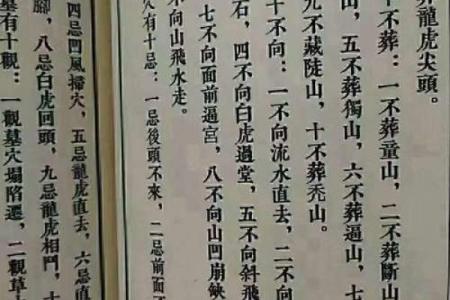 龍虎尖頭。
十不葬：一不葬童山，二不葬斷山
山，五不葬獨山，六不葬逼山，七
九不藏陡山，十不葬禿山。
十不向：一不向流水直去，二不向
石，四不向白虎過堂，五不向斜飛
七不向面前逼宮，八不向山凹崩缺
不向山飛水走。
穴有十忌：一忌後頭不來，二忌前面
四忌凹風掃穴，五忌龍虎直去，六忌直
腳，八忌白虎回頭，九忌龍虎相鬥，十
墓有十觀：一觀墓穴塌陷遷，二觀草